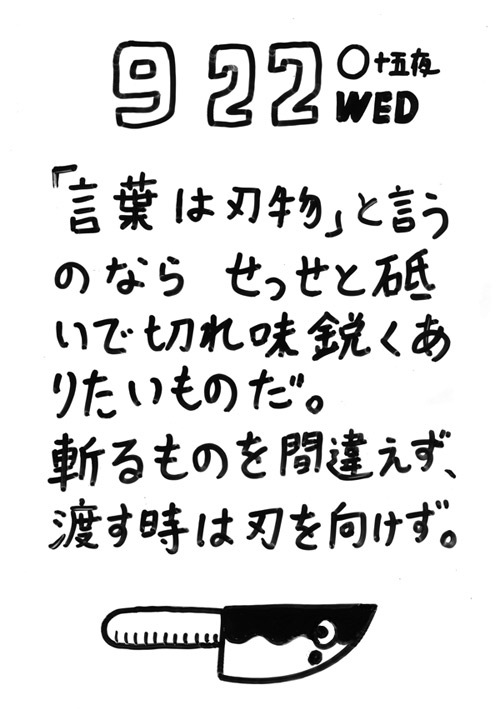 9 22 〇十五夜
WED
「言葉は刃物」と言う
のなら せっせと砥
いで切れ味鋭くあ
りたいものだ。
斬るものを間違えず、
渡す時は刃を向けず。